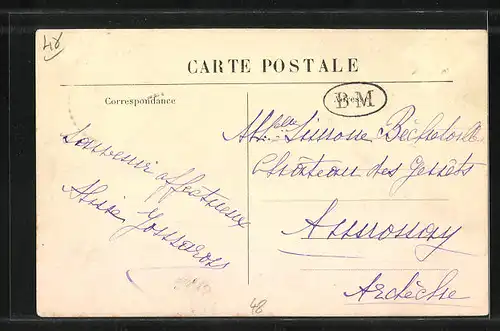 48
CARTE POSTALE
Correspondance
Adresse
B·M
Souvenir affectueux
Mlle Simone Béchetoille
Château des Genêts
Annonay
Ardèche
48